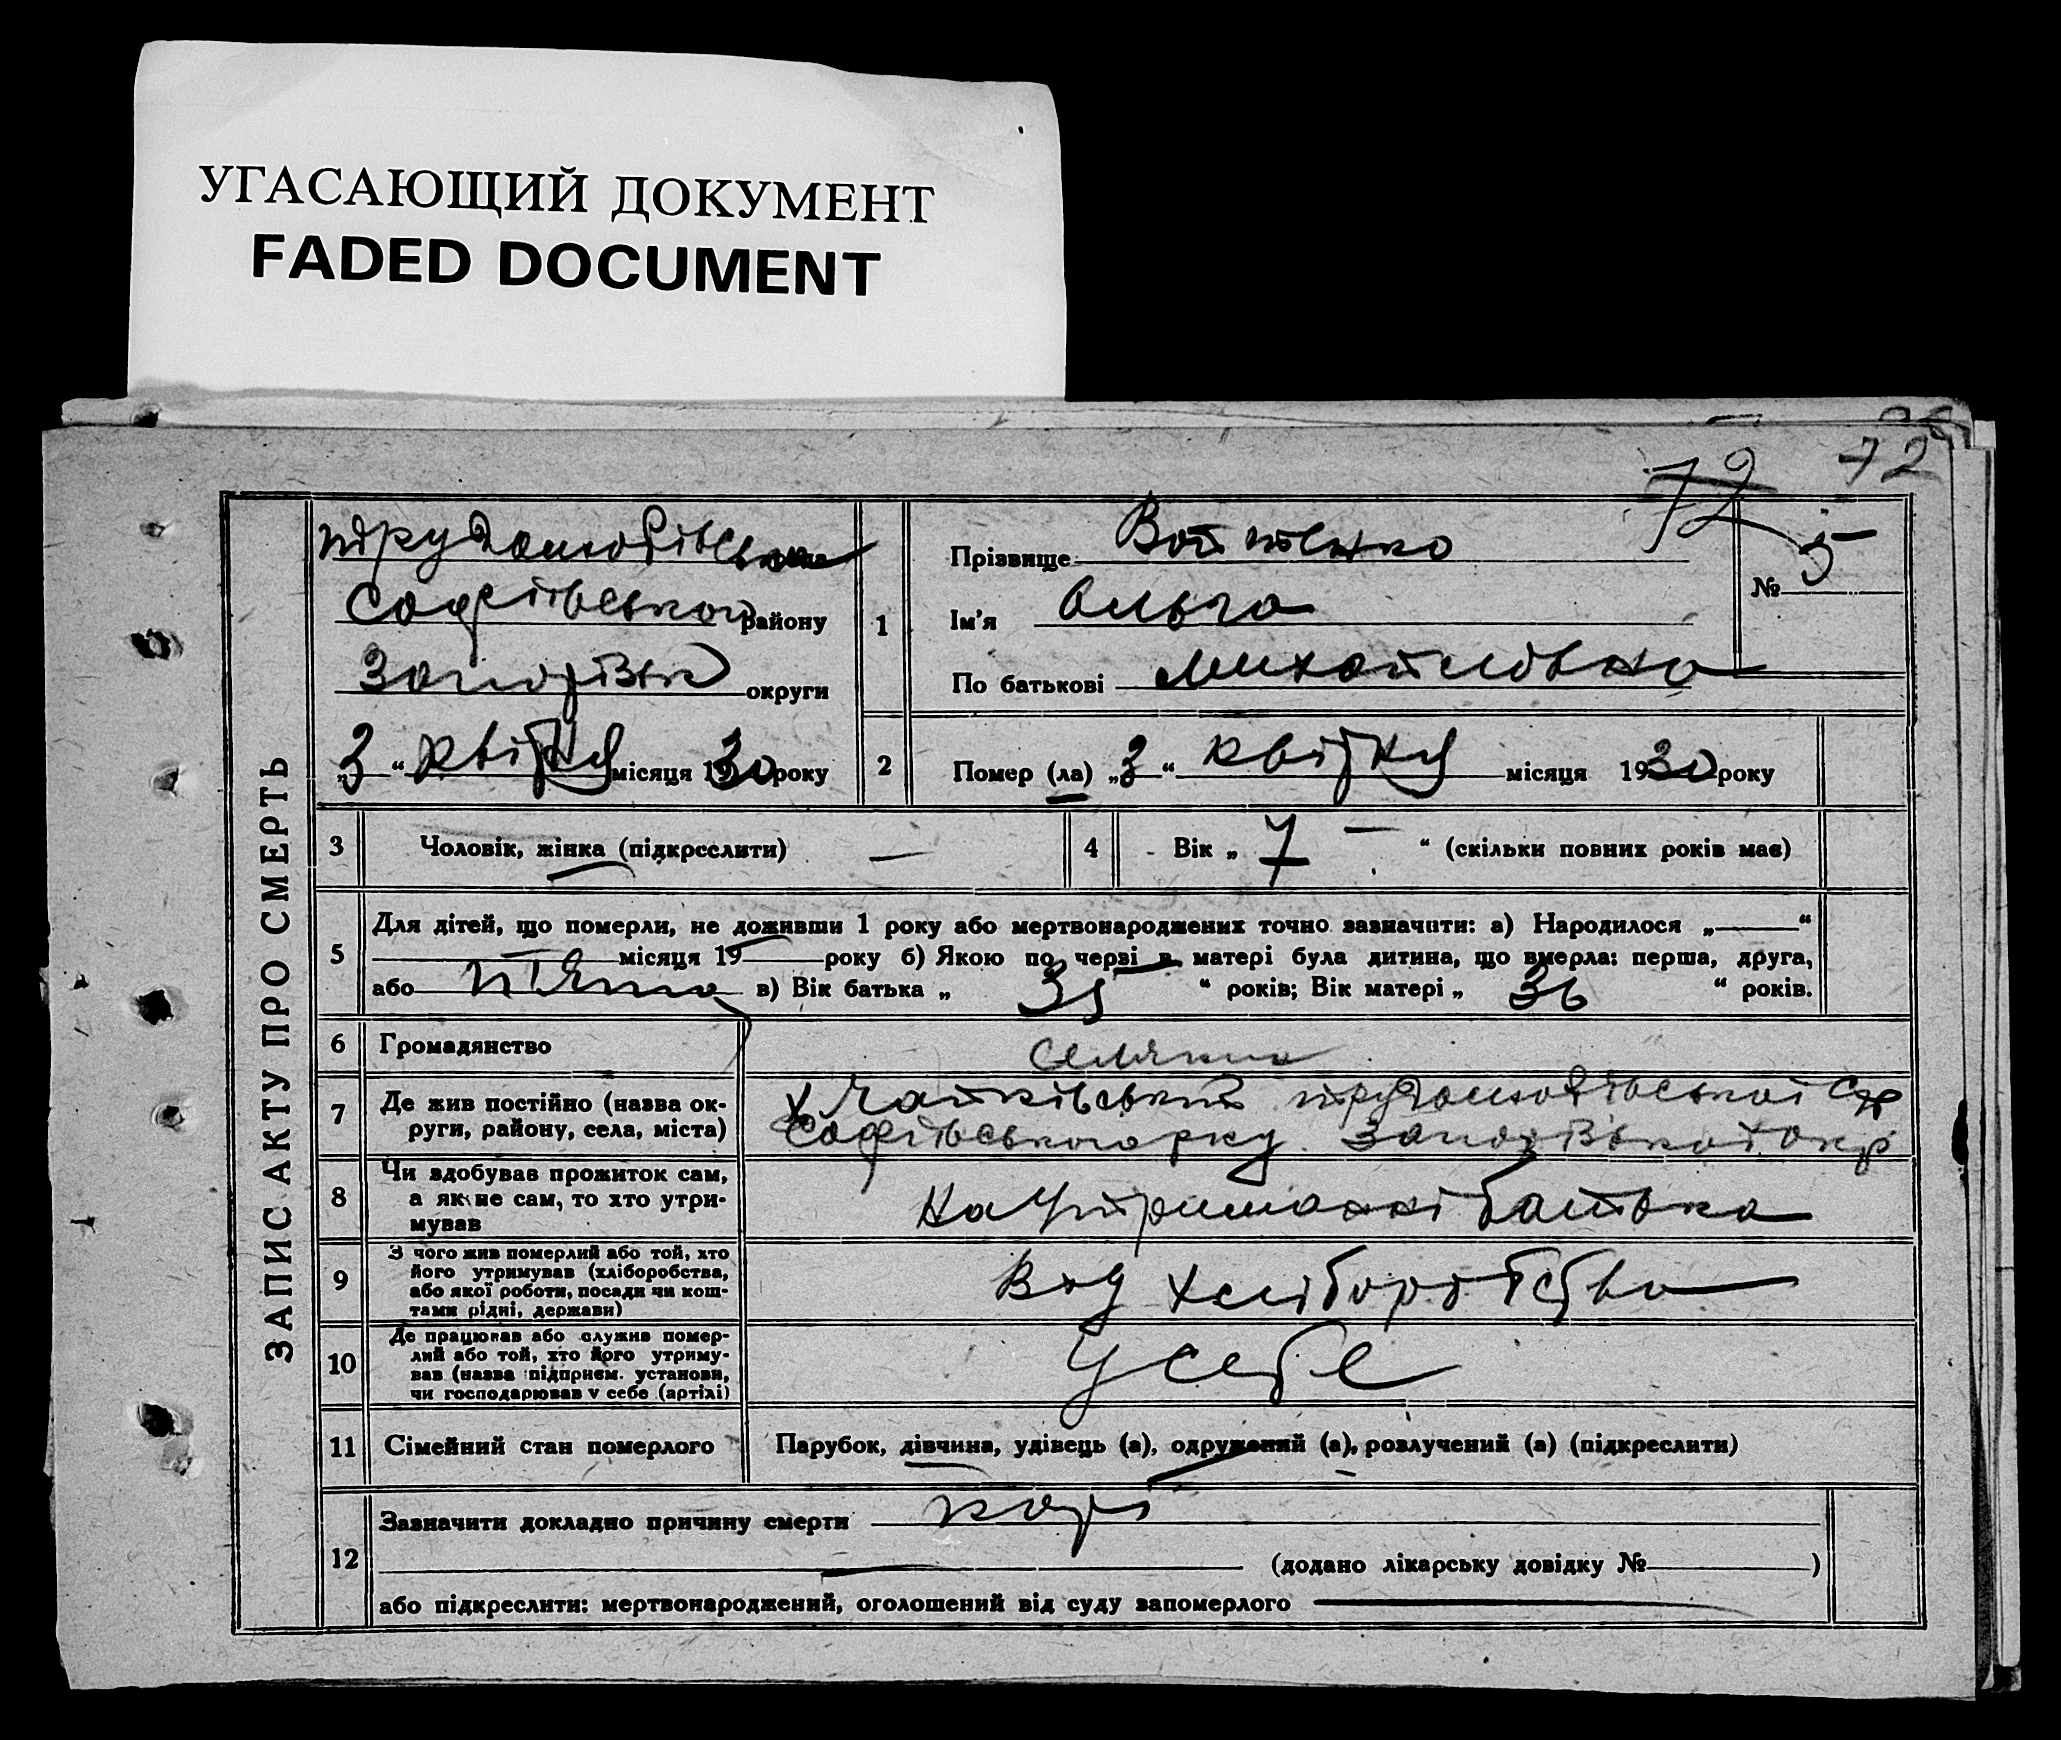 УГАСАЮЩИЙ ДОКУМЕНТ
FADED DOCUMENT
72 72
ЗАПИС АКТУ ПРО СМЕРТЬ
Трудолюбівська
Софіївської району
Запорізьк округи
„3“ квітня місяця 1930 року
1
Прізвище Войтенко
Ім'я Ольга
По батькові Михайлівна
№ 5
2 Помер (ла) „3“ квітня місяця 1930 року
3 Чоловік, жінка (підкреслити) —
4 Вік „7“ (скільки повних років має)
5 Для дітей, що померли, не доживши 1 року або мертвонароджених точно зазначити: а) Народилося „—“
місяця 19— року б) Якою по черві в матері була дитина, що вмерла: перша, друга,
або п'ята в) Вік батька „35“ років; Вік матері „36“ років.
6 Громадянство селянка
7 Де жив постійно (назва ок-
руги, району, села, міста)
х Чайківський Трудолюбівської с/р
Софіївського р-ну Запорізької окр
8 Чи здобував прожиток сам,
а як не сам, то хто утри-
мував
На утриманні батька
9 З чого жив померлий або той, хто
його утримував (хліборобства,
або якої роботи, посади чи кош-
тами рідні, держави)
Від хліборобства
10 Де працював або служив помер-
лий або той, хто його утриму-
вав (назва підприєм. установи,
чи господарював у себе (артілі)
У себе
11 Сімейний стан померлого Парубок, дівчина, удівець (а), одружений (а), розлучений (а) (підкреслити)
12 Зазначити докладно причину смерти кор
(додано лікарську довідку № )
або підкреслити: мертвонароджений, оголошений від суду запомерлого